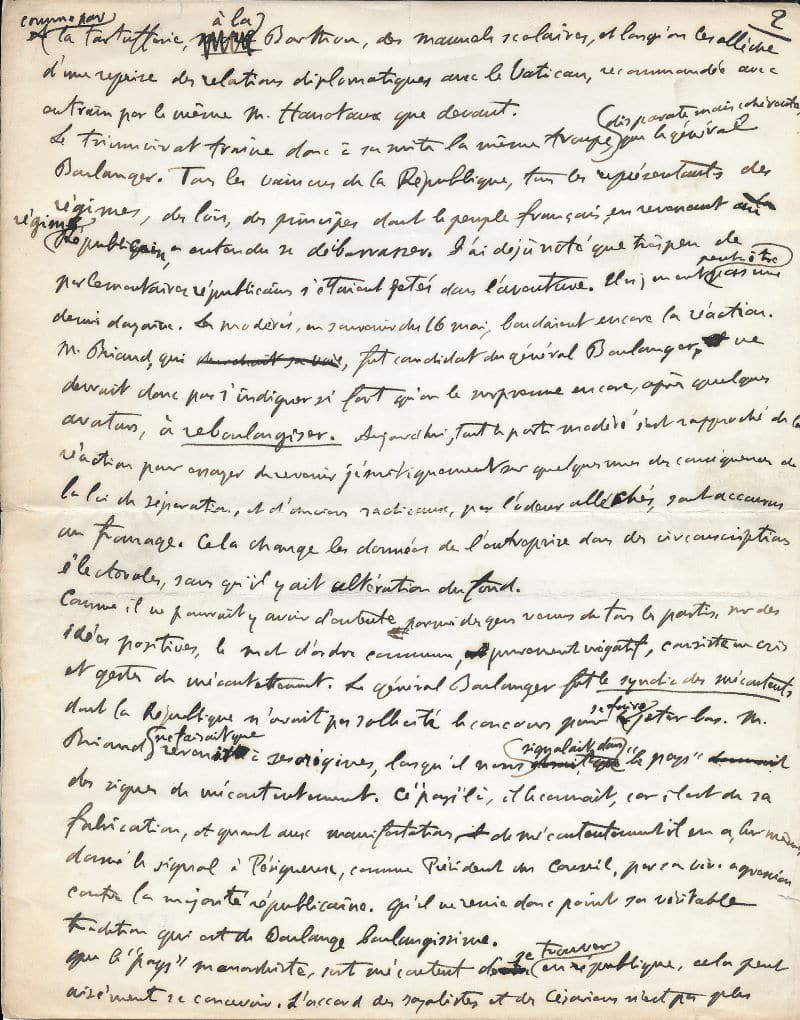 2
comme par
à la
la tartufferie, Barthou, des manuels scolaires, et lorsqu'on les allèche
d'une reprise des relations diplomatiques avec le Vatican, recommandée avec
entrain par le même M. Hanotaux que devant.
disparate mais cohérente,
Le triumvirat traîne donc à sa suite la même troupe que le général
Boulanger. Tous les vaincus de la République, tous les représentants des
régimes, des lois, des principes dont le peuple français, en revenant au
régime
républicain, a entendu se débarrasser. J'ai déjà noté que très peu de
peut-être
parlementaires républicains s'étaient jetés dans l'aventure. Il n'y en eut pas une
demi douzaine. Les modérés, en souvenir du 16 mai, boudaient encore la réaction.
M. Briand, qui cherchait sa voie, fut candidat du général Boulanger, et ne
devrait donc pas s'indigner si fort qu'on le surprenne encore, après quelques
avatars, à reboulangiser. Aujourd'hui, tout le parti modéré s'est rapproché de la
réaction pour essayer de revenir jésuitiquement sur quelques unes des conséquences de
la loi de séparation, et d'anciens radicaux, par l'odeur alléchés, sont accourus
au fromage. Cela change les données de l'entreprise dans des circonscriptions
électorales, sans qu'il y ait altération du fond.
Comme il ne pourrait y avoir d'entente, parmi des gens venus de tous les partis, sur des
idées positives, le mot d'ordre commun, purement négatif, consiste en cris
et gestes de mécontentement. Le général Boulanger fut le syndic des mécontents
se faire
dont la République n'avait pas sollicité le concours pour jeter bas. M.
ne faisait que
signalait dans
Briand revenir à ses origines, lorsqu'il nous "le pays"
des signes de mécontentement. Ce "pays" là, il le connaît, car il est de sa
fabrication, et quant aux manifestations de mécontentement il en a, lui-même,
donné le signal à Périgueux, comme Président du Conseil, par sa vive agression
contre la majorité républicaine. Qu'il ne renie donc point sa véritable
tradition qui est de Boulange boulangissime.
se trouver
Que le "pays" monarchiste, soit mécontent de en république, cela peut
aisément se concevoir. L'accord des royalistes et des Césariens n'est pas plus